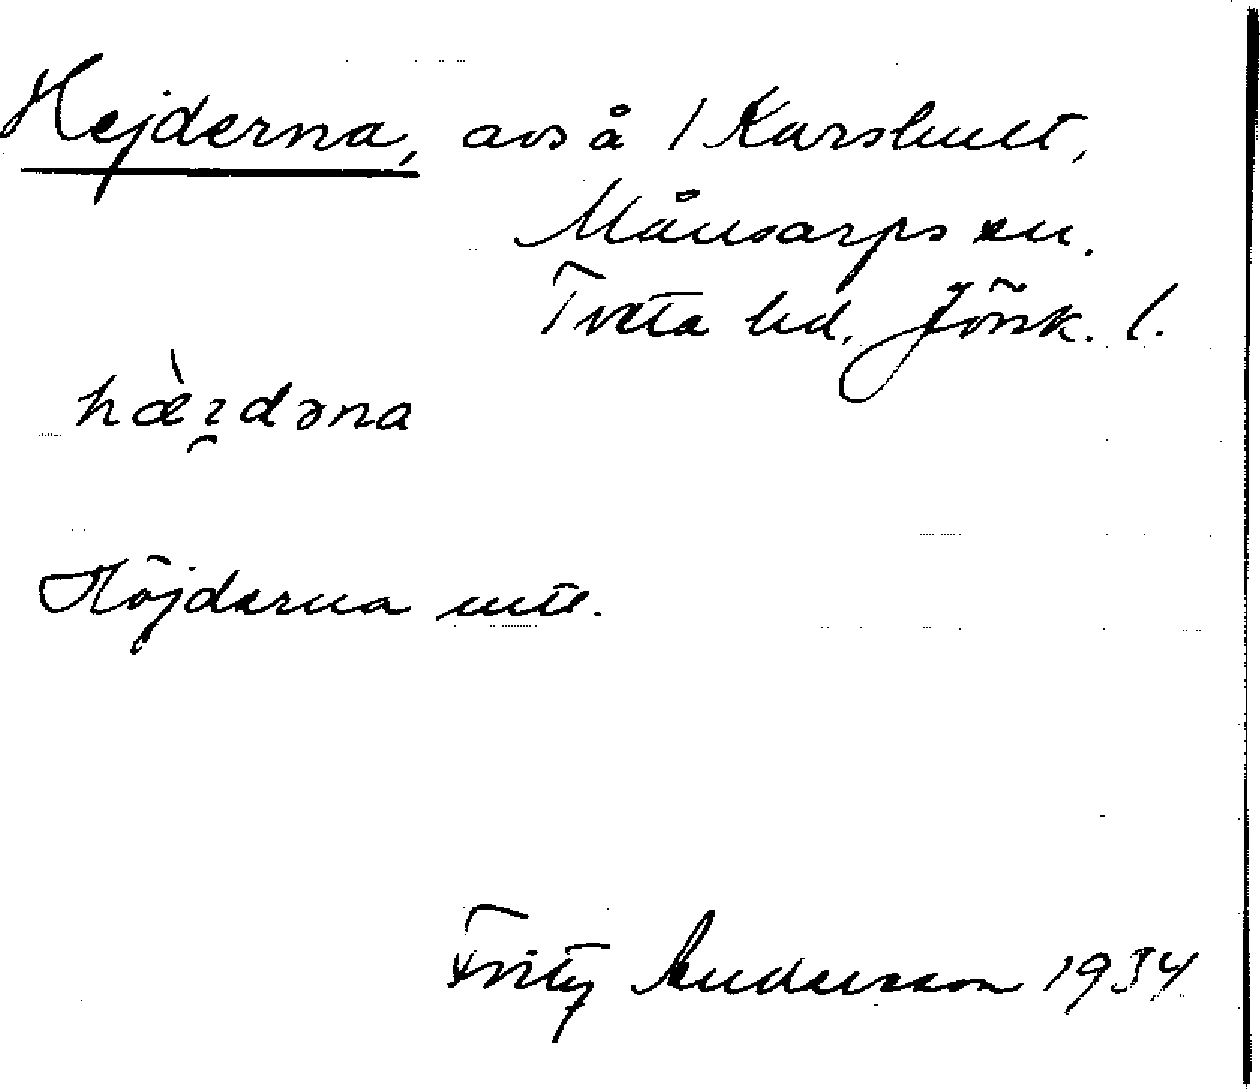 Hejderna, avs å 1 Karshult,
Månsarps sn.
Tveta hd, Jönk. l.
hæ̀i̯dəna
Höjderna mtl.
Fritz Andersson 1934